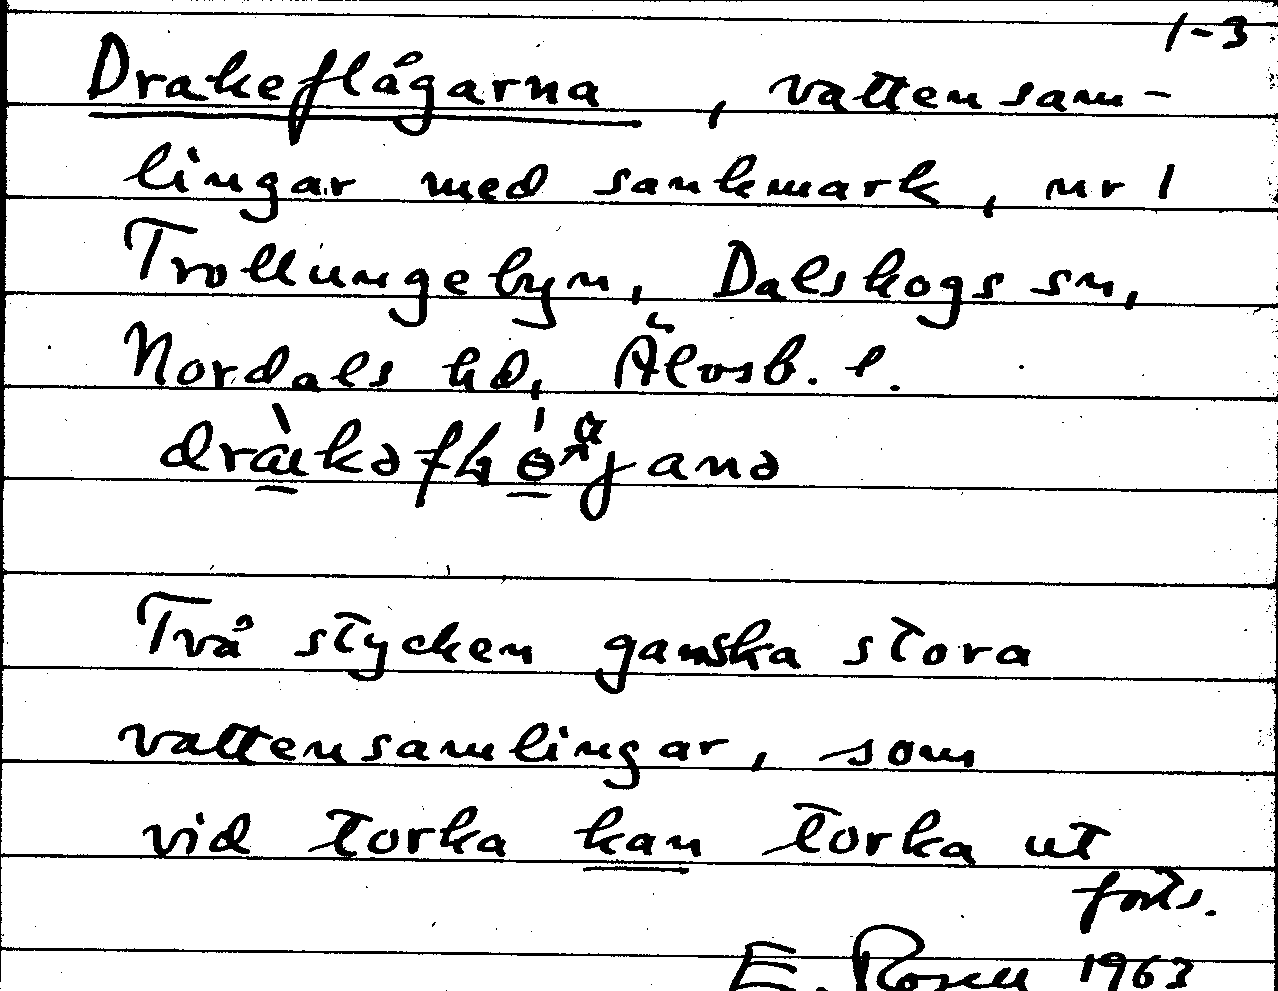 1-3
Drakeflågarna, vattensam-
lingar med sankmark, nr 1
Trollungebyn, Dalskogs sn,
Nordals hd, Älvsb. l.
Två stycken ganska stora
vattensamlingar, som
vid torka kan torka ut
forts.
E. Rosell 1963